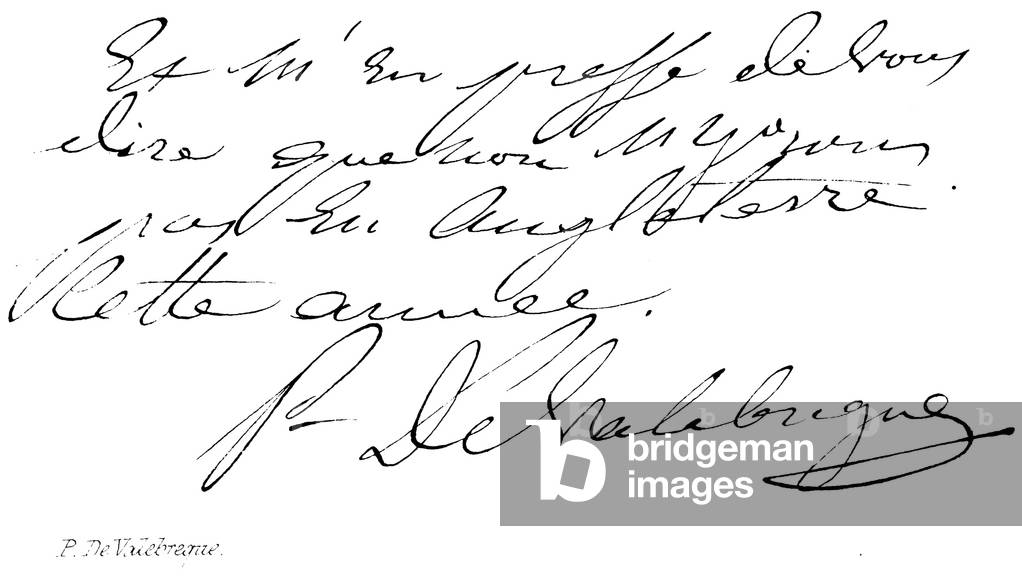 Et m'en presse de vous
dire que nou n'yrons
pas en Angleterre.
Cette année.
P. De Valabrègue
bridgeman
images
P. De Valebreque.